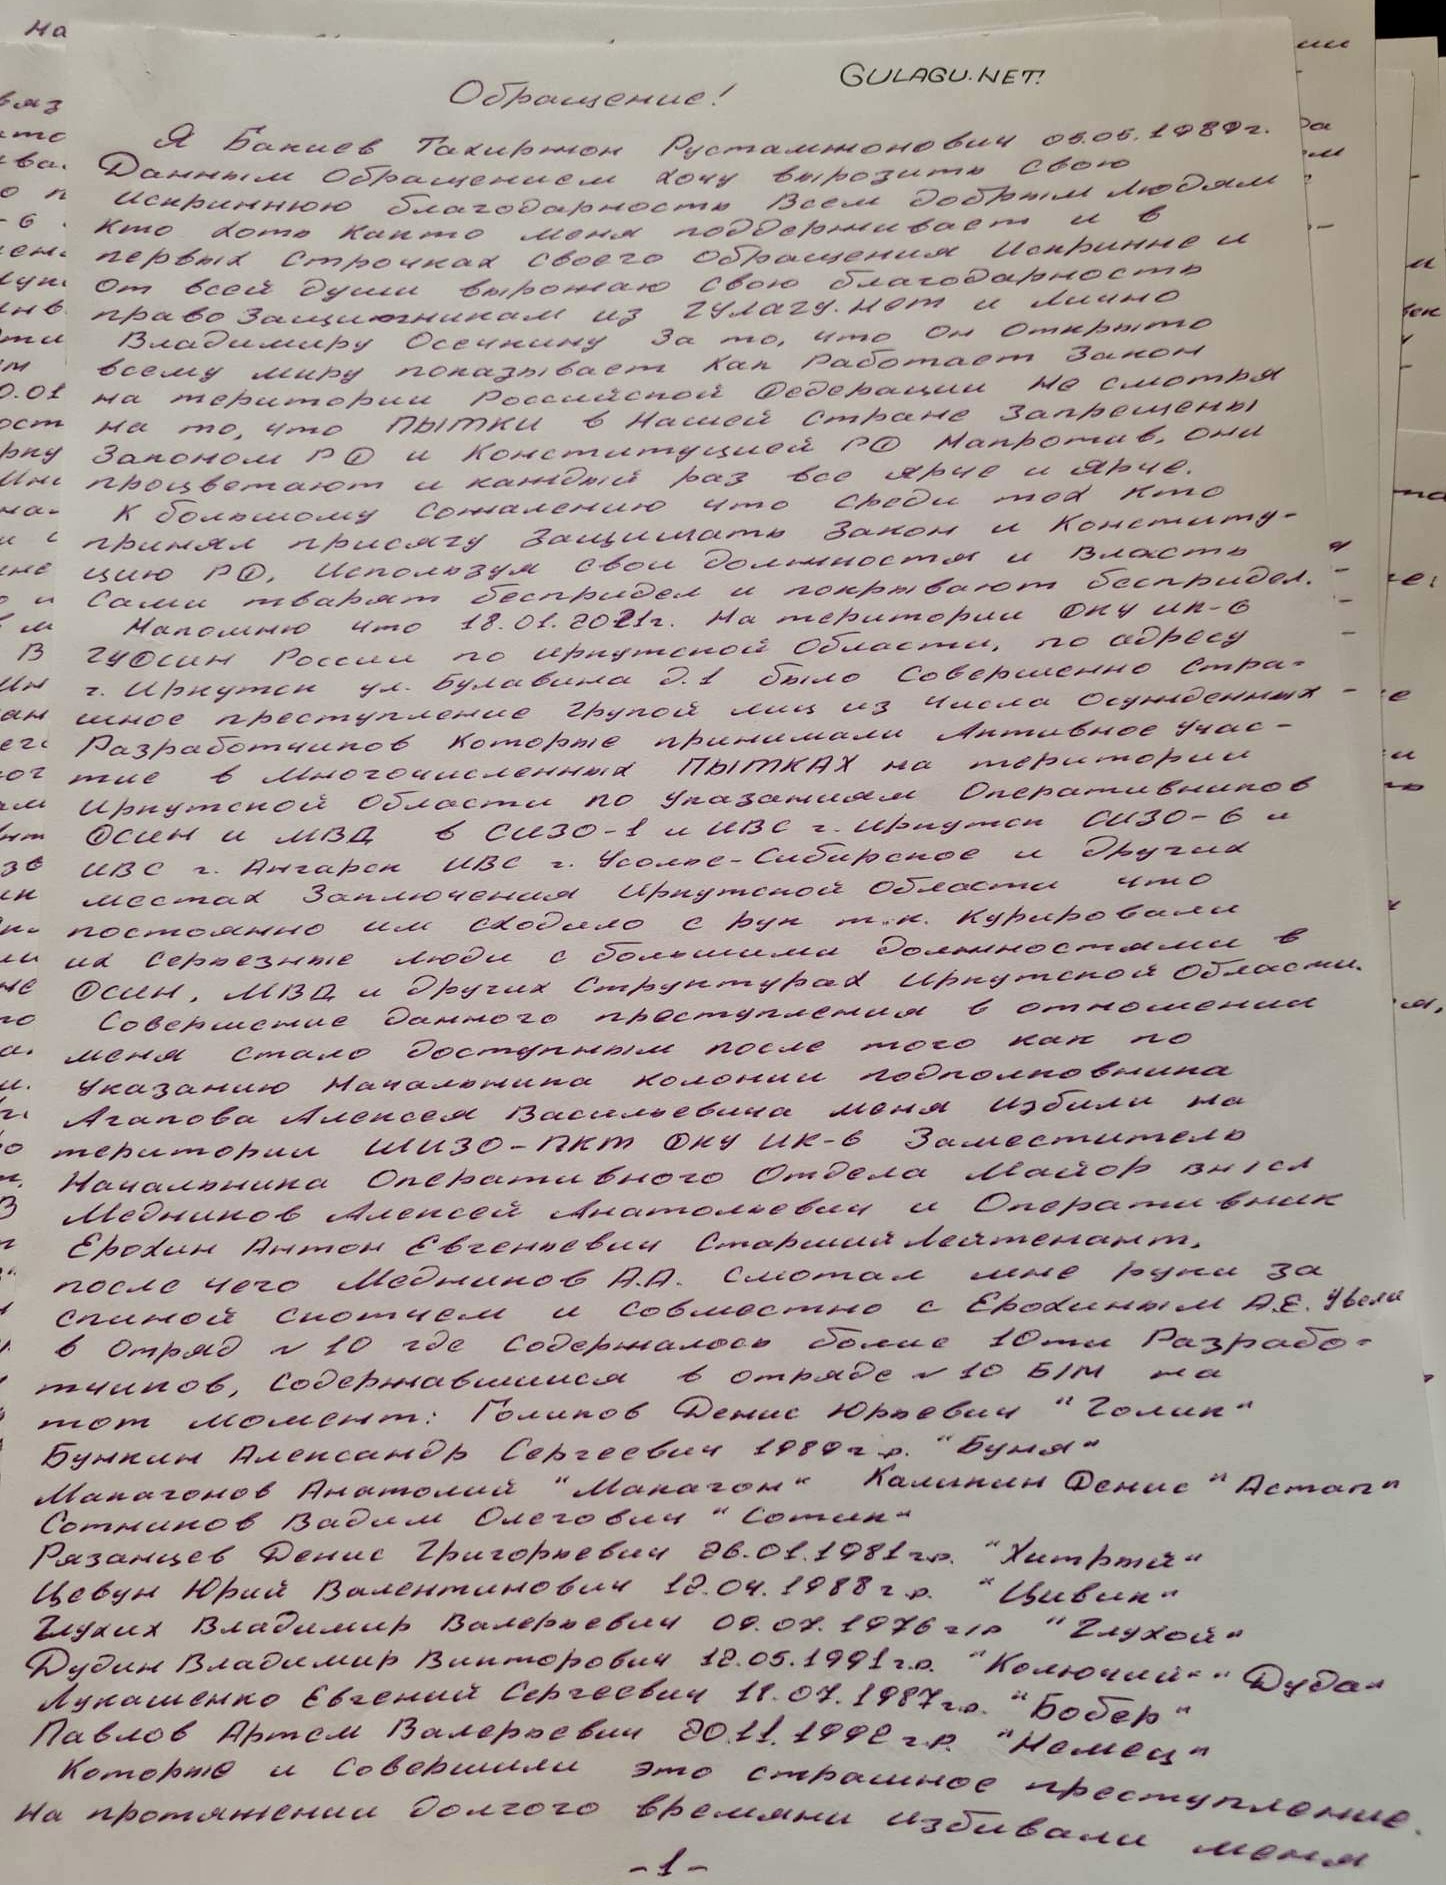 GULAGU.NET!
Обращение!
Я Бакиев Тахиржон Рустамжонович 05.05.1989г.
Данным Обращением хочу вырозить свою
искриннюю благодарность Всем добрым людям
кто хоть както меня поддерживает и в
первых строчках своего обращения Искринне и
от всей души выражаю свою благодарность
право Защитникам из гулагу.нет и лично
Владимиру Осечкину За то, что он открыто
всему миру показывает как Работает Закон
на територии Российской Федерации не смотря
на то, что ПЫТКИ в Нашей стране запрещены
Законом РФ и Конституцией РФ Напротив, они
процветают и каждый раз все ярче и ярче.
К большому сожалению что среди тех кто
принял присягу Защищать Закон и Конститу-
цию РФ, Используя свои должностя и Власть
Сами тварят беспридел и покрывают беспридел.
Напомню что 18.01.2021г. На територии ФКУ ИК-6
ГУФСИН России по иркутской Области, по адресу
г. Иркутск ул. Булавина д.1 было Совершенно Стра-
шное преступление Групой лиц из числа Осужденных
Разработчиков которые принимали Активное Учас-
тие в Многочисленных ПЫТКАХ на територии
Иркутской Области по Указаниям Оперативников
ФСИН и МВД в СИЗО-1 и ИВС г. Иркутск СИЗО-6 и
ИВС г. Ангарск ИВС г. Усолье-Сибирское и других
местах Заключения Иркутской Области что
постоянно им сходило с рук т.к. Курировали
их серьезные люди с большими должностями в
ФСИН, МВД и других Структурах Иркутской Области.
Совершение данного преступления в отношении
меня стало доступным после того как по
Указанию Начальника колонии подполковника
Агапова Алексея Васильевича меня избили на
територии ШИЗО-ПКТ ФКУ ИК-6 Заместитель
Начальника Оперативного Отдела Майор вн/сл
Медников Алексей Анатольевич и Оперативник
Ерохин Антон Евгеньевич Старший Лейтенант,
после чего Медников А.А. смотал мне руки за
спиной скотчем и совместно с Ерохиным А.Е. Увели
в Отряд №10 где содержалось более 10ти Разрабо-
тчиков, содержавшихся в отряде №10 Б/М на
тот момент: Голиков Денис Юрьевич "Голик"
Бункин Александр Сергеевич 1989г.р. "Буня"
Макагонов Анатолий "Макагон" Калинин Денис "Астап"
Сотников Вадим Олегович "Сотик"
Рязанцев Денис Григорьевич 26.01.1981г.р. "Хитрый"
Цевун Юрий Валентинович 12.04.1988г.р. "Цивик"
Глухих Владимир Валерьевич 09.07.1976г/р "Глухой"
Дудин Владимир Викторович 12.05.1991г.р. "Колючий" "Дуда"
Лукашенко Евгений Сергеевич 11.07.1987г.р. "Бобер"
Павлов Артем Валерьевич 20.11.1992г.р. "Немец"
Которые и совершили это страшное преступление.
На протяжении долгого времяни избивали меня
-1-